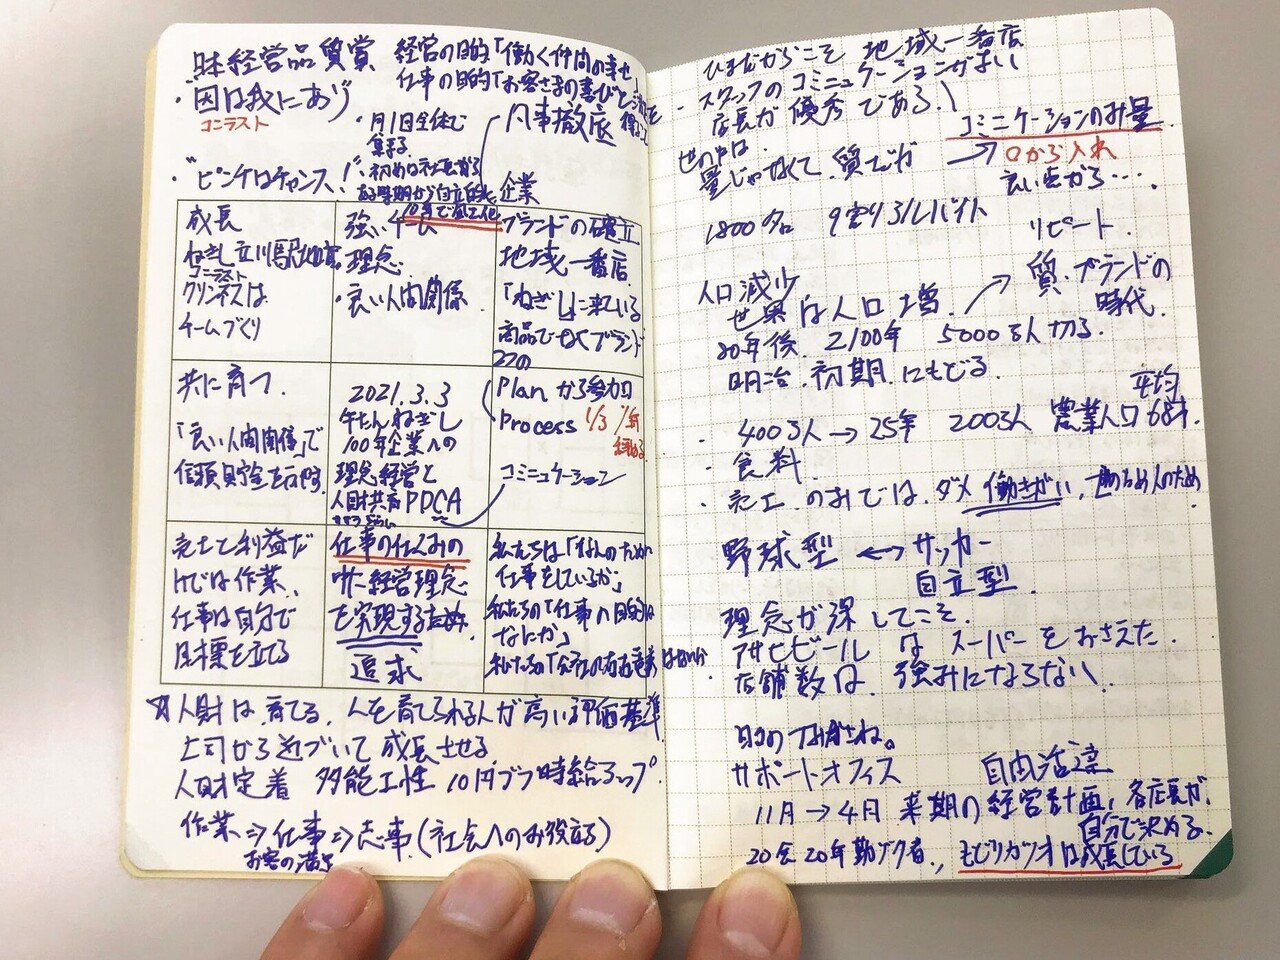 経営品質賞
経営の目的「働く仲間の幸せ」
仕事の目的「お客さまの喜びと
・因は我にあり
コンテスト
・月1回全体で
集まる
凡事徹底
・"ピンチはチャンス!"
初めは
企業
成長
ねぎし立川駅
コンテスト
クリンネスは
チームづくり
強いチーム
理念
・良い人間関係
ブランドの確立
地域一番店
「ねぎし」に来ている
商品でなくブランド
共に育つ
「良い人間関係」で
信頼貯金を
2021.3.3
牛たんねぎし
100年企業への
理念経営と
人財共育PDCA
Planから参加
Process 1/3
コミニュケーション
売上と利益だ
けでは作業、
仕事は自分で
目標を立てる
仕事の仕くみの
中に経営理念
を実現するため
追求
私たちは「なんのために
仕事をしているか」
私たちの「仕事の目的は
なにか」
☆人財は、育てる、人を育てられる人が高い評価基準
上司から近づいて成長させる
人財定着 多能工性 10円プラ時給アップ
作業⇒仕事⇒志事(社会へのお役立ち)
お客の満足
ひまだからこそ 地域一番店
・スタッフのコミニュケーションがよい
店長が優秀である。
コミニケーションのみ量
世の中は
量じゃなくて、質でが
→口から入れ
良い点から…
1800名 9割アルバイト
リピート.
人口減少
世界は人口増.
質・ブランドの
時代.
80年後. 2100年 5000万人切る.
明治.初期.にもどる.
平均
・400万人→25年 200万人 農業人口68才.
・食料
・売上 のみでは.ダメ 働きがい、世のため人のため
野球型 ←→サッカー
自立型
理念が深してこそ.
アサヒビールはスーパーをおさえた.
店舗数は、強みにならない.
サポートオフィス
自由活達
11月→4月 来期の経営計画、各店長が、
自分で決める.
20会20年勤ム者、モビリカツオは成長している